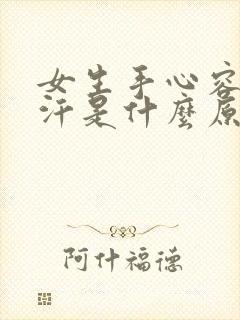 女生手心容
汗是什麼原
阿什福德